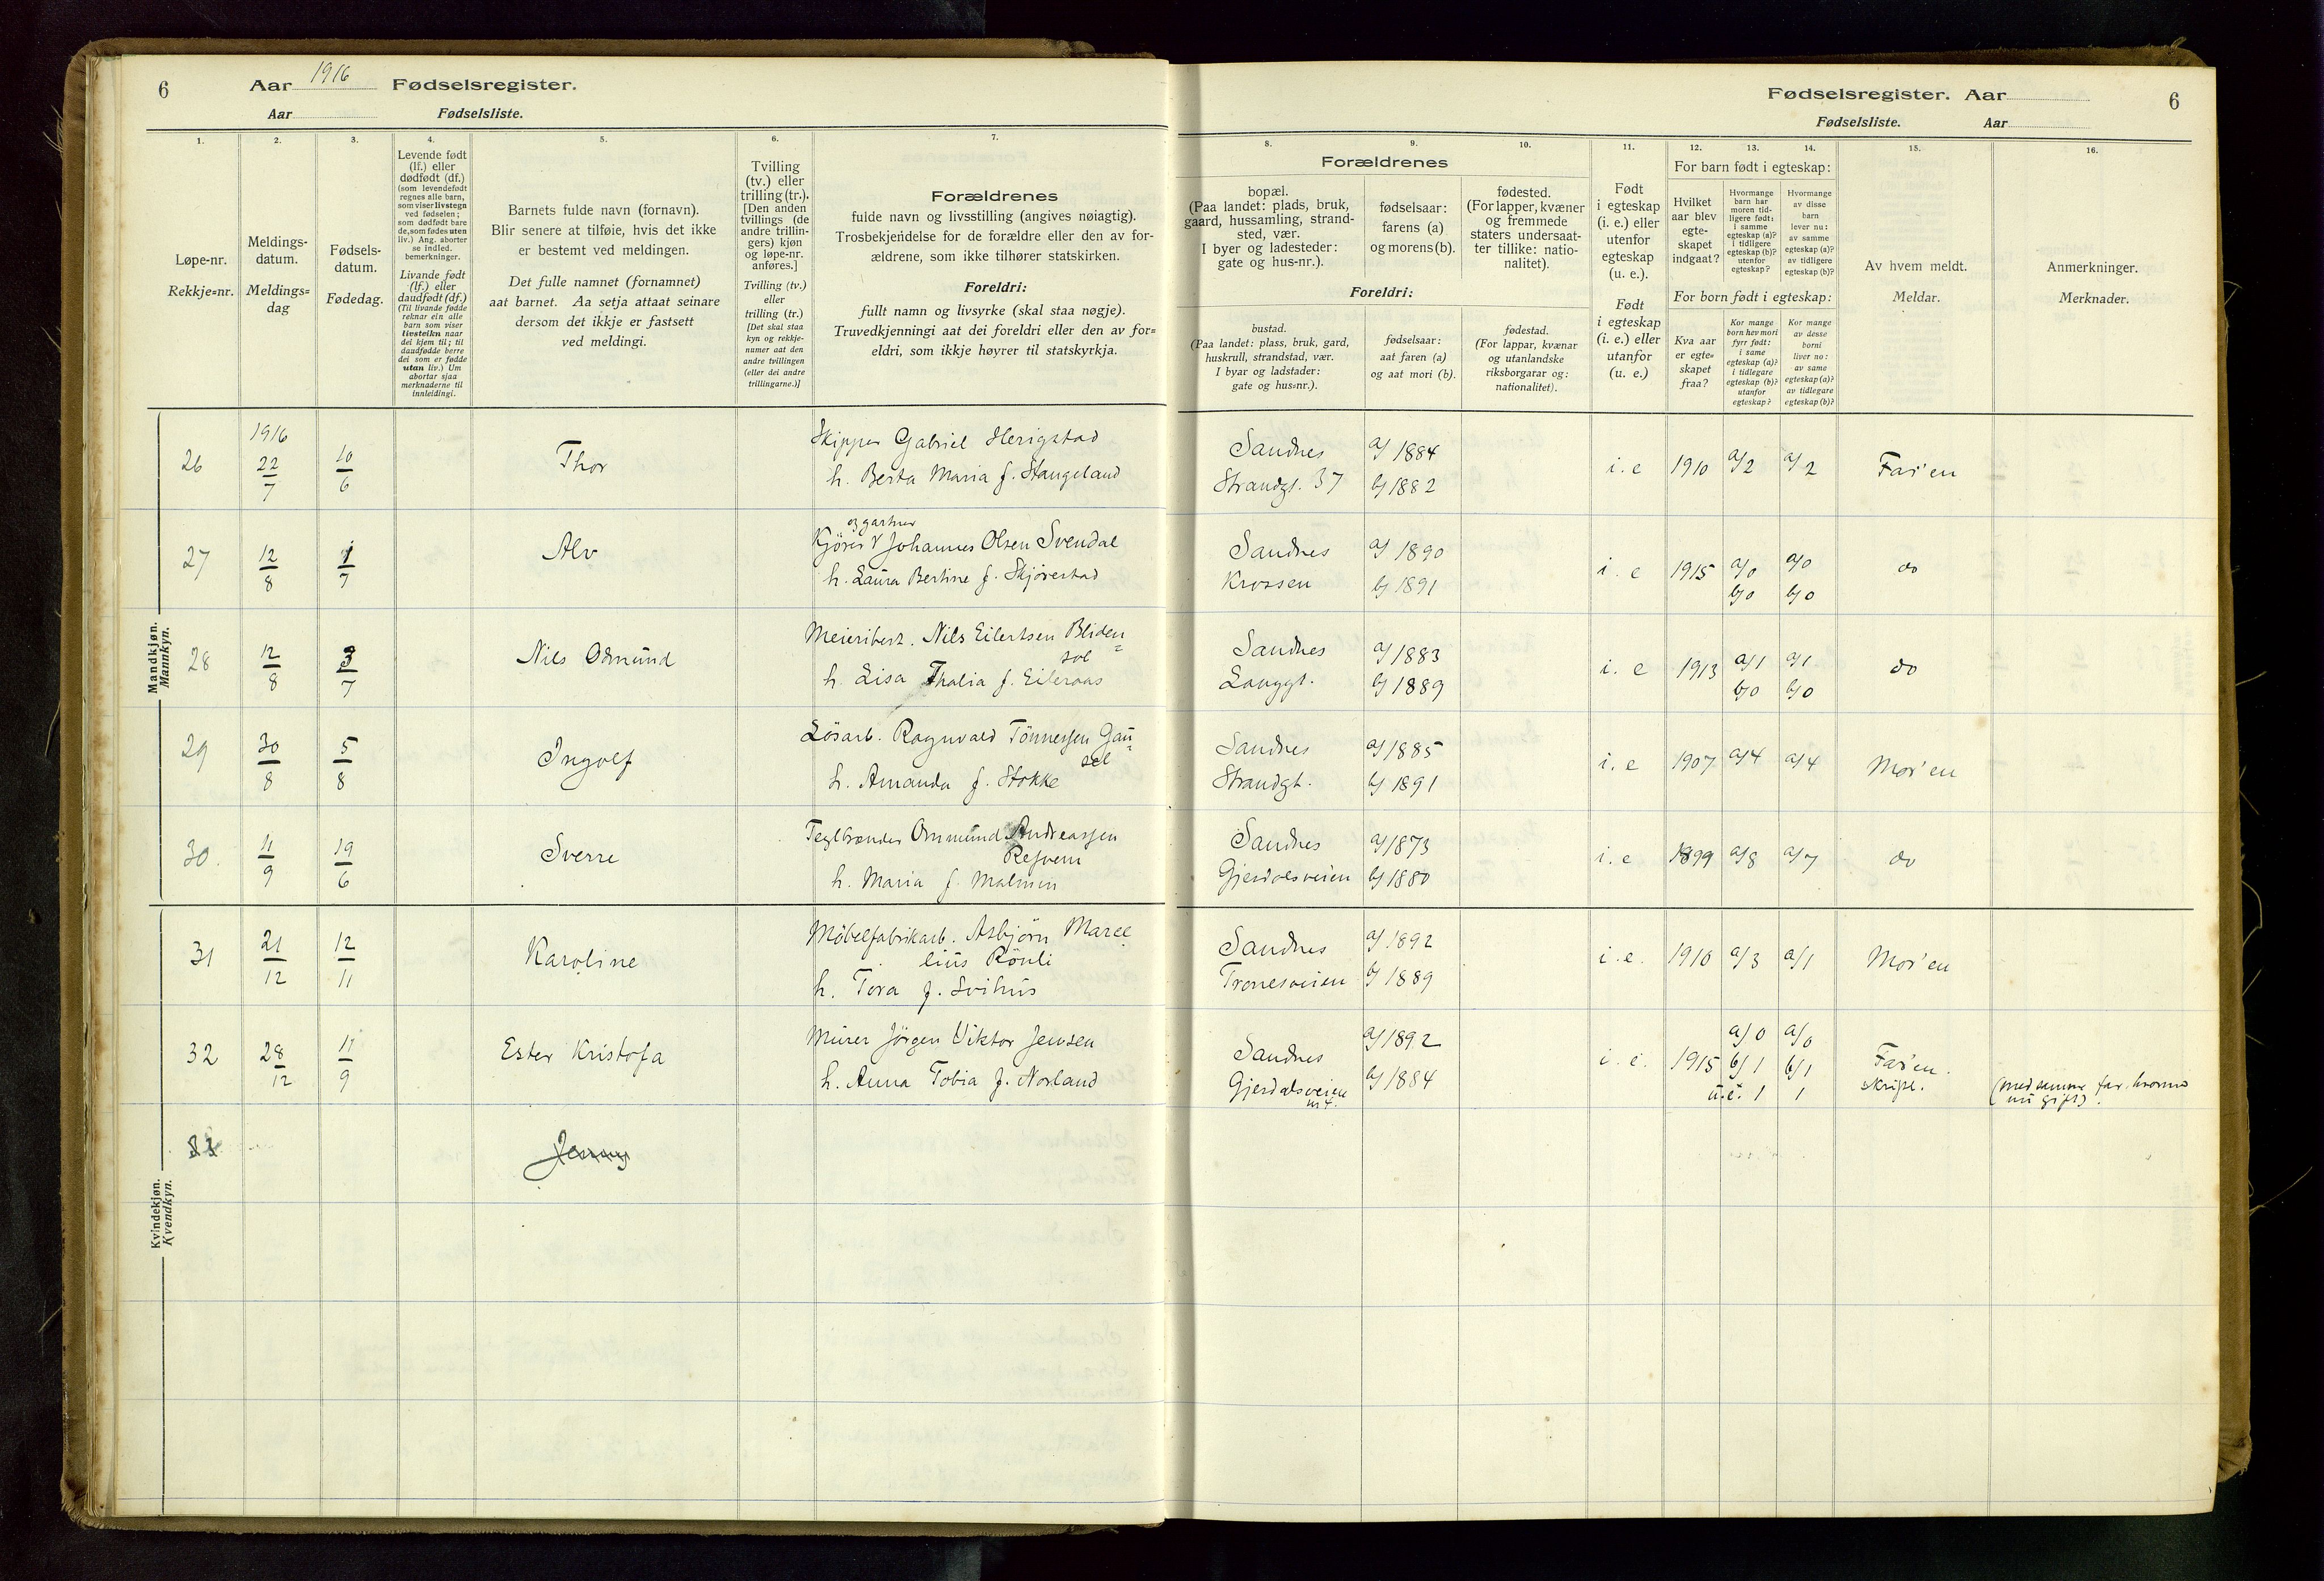 6
Aar 1916 Fødselsregister.
Aar Fødselsliste.
1.
2.
3.
4.
5.
6.
7.
Løpe-nr.
Rekkje=nr.
Meldings-
datum.
Meldings=
dag
Fødsels-
datum.
Fødedag.
Levende født
(lf.) eller
dødfødt (df.)
(som levendefødt
regnes alle barn,
som viser livstegn
ved fødselen;
som dødfødt bare
de, som fødes uten
liv.) Ang. aborter
se indled.
bemerkninger.
Livande født
(lf.) eller
daudfødt (df.)
(Til livande fødde
reknar ein alle
barn som viser
livsteikn naar
dei kjem til; til
daudfødde berre
dei som er fødde
utan liv.) Um
abortar sjaa
merknaderne til
innleidingi.
Barnets fulde navn (fornavn).
Blir senere at tilføie, hvis det ikke
er bestemt ved meldingen.
Det fulle namnet (fornamnet)
aat barnet. Aa setja attaat seinare
dersom det ikkje er fastsett
ved meldingi.
Tvilling
(tv.) eller
trilling (tr.).
[Den anden
tvillings (de
andre trillin-
gers) kjøn
og løpe-nr.
anføres.]
Tvilling (tv.)
eller
trilling (tr.)
[Det skal staa
kyn og rekkje-
numer aat den
andre tvillingen
(eller dei andre
trillingarne.)]
Forældrenes
fulde navn og livsstilling (angives nøiagtig).
Trosbekjendelse for de forældre eller den av for-
ældrene, som ikke tilhører statskirken.
Foreldri:
fullt namn og livsyrke (skal staa nøgje).
Truvedkjenningi aat dei foreldri eller den av for=
eldri, som ikkje høyrer til statskyrkja.
Mandkjøn.
Mannkyn.
26
1916
22/7
10/6
Thor
Skipper Gabriel Herigstad
h. Berta Maria f. Stangeland
27
12/8
1/7
Alv
og gartner
Kjører V Johannes Olsen Svendal
h. Laura Bertine f. Skjørestad
28
12/8
3/7
Nils Odmund
Meieribest. Nils Eilertsen Bliden=
sol
h. Lisa Thalia f. Eileraas
29
30/8
5/8
Ingolf
Løsarb. Ragnvald Tönnessen Gau=
sel
h. Amanda f. Stokke
30.
11/9
19/6
Sverre
Teglbrænder Ommund Andreassen
Refvem
h. Maria f. Malmin
31
21/12
12/11
Karoline
Möbelfabrikarb. Asbjörn Marcel=
lius Rönli
h. Tora f. Svihus
32
28/12
11/9
Ester Kristofa
Murer Jörgen Viktor Jensen
h. Anna Tobia f. Norland
33
Jenny
Kvindekjøn.
Kvendkyn.
Fødselsregister. Aar
6
Fødselsliste. Aar
8.
9.
10.
11.
12.
13.
14.
15.
16.
Forældrenes
bopæl.
(Paa landet: plads, bruk,
gaard, hussamling, strand-
sted, vær.
I byer og ladesteder:
gate og hus-nr.).
fødselsaar:
farens (a)
og morens (b).
fødested.
(For lapper, kvæner
og fremmede
staters undersaat-
ter tillike: natio-
nalitet).
Foreldri:
bustad.
(Paa landet: plass, bruk, gard,
huskrull, strandstad, vær.
I byar og ladstader:
gate og hus=nr.).
fødselsaar:
aat faren (a)
og aat mori (b).
fødestad.
(For lappar, kvænar
og utanlandske
riksborgarar og:
nationalitet).
Født
i egteskap
(i. e.) eller
utenfor
egteskap
(u. e.).
Født
i egteskap
(i. e.) eller
utanfor
(u. e.)
For barn født i egteskap:
Hvilket
aar blev
egte-
skapet
indgaat?
Hvormange
barn har
moren tid-
ligere født:
i samme
egteskap (a)?
i tidligere
egteskap (b)?
utenfor
egteskap?
Hvormange
av disse
barn
lever nu:
av samme
egteskap (a)?
av tidligere
egteskap (b)?
For born født i egteskap:
Kva aar
er egte=
skapet
fraa?
Kor mange
born hev mori
fyrr født:
i same
egteskap (a)?
i tidlegare
egteskap (b)?
utanfor
egteskap?
Kor mange
av desse
borni
liver no:
av same
egteskap (a)?
av tidlegare
egteskap (b)?
Av hvem meldt.
Meldar.
Anmerkninger.
Merknader.
Sandnes
Strandgt. 37
a/ 1884
b/ 1882
i. e
1910
a/2
a/2
Far'en
Sandnes
Krossen
a/ 1890
b/ 1891
i. e
1915
a/0
b/0
a/0
b/0
do
Sandnes
Langgt.
a/ 1883
b/ 1889
i. e
1913
a/1
b/0
a/1
b/0
do
Sandnes
Strandgt.
a/ 1885
b/ 1891
i. e
1907
a/4
a/4
Mor'en
Sandnes
Gjesdalsveien
a/ 1873
b/ 1880
i. e
1899
a/8
a/7
do
Sandnes
Tronesveien
a/ 1892
b/ 1889
i. e.
1910
a/3
a/1
Mor'en
Sandnes
Gjesdalsveien
nr 4.
a/ 1892
b/ 1884
i. e.
1915
a/0
b/1
u.e. 1
a/0
b/1
1
Far'en.
skriftl.
(med samme far hvormed
nu gift).